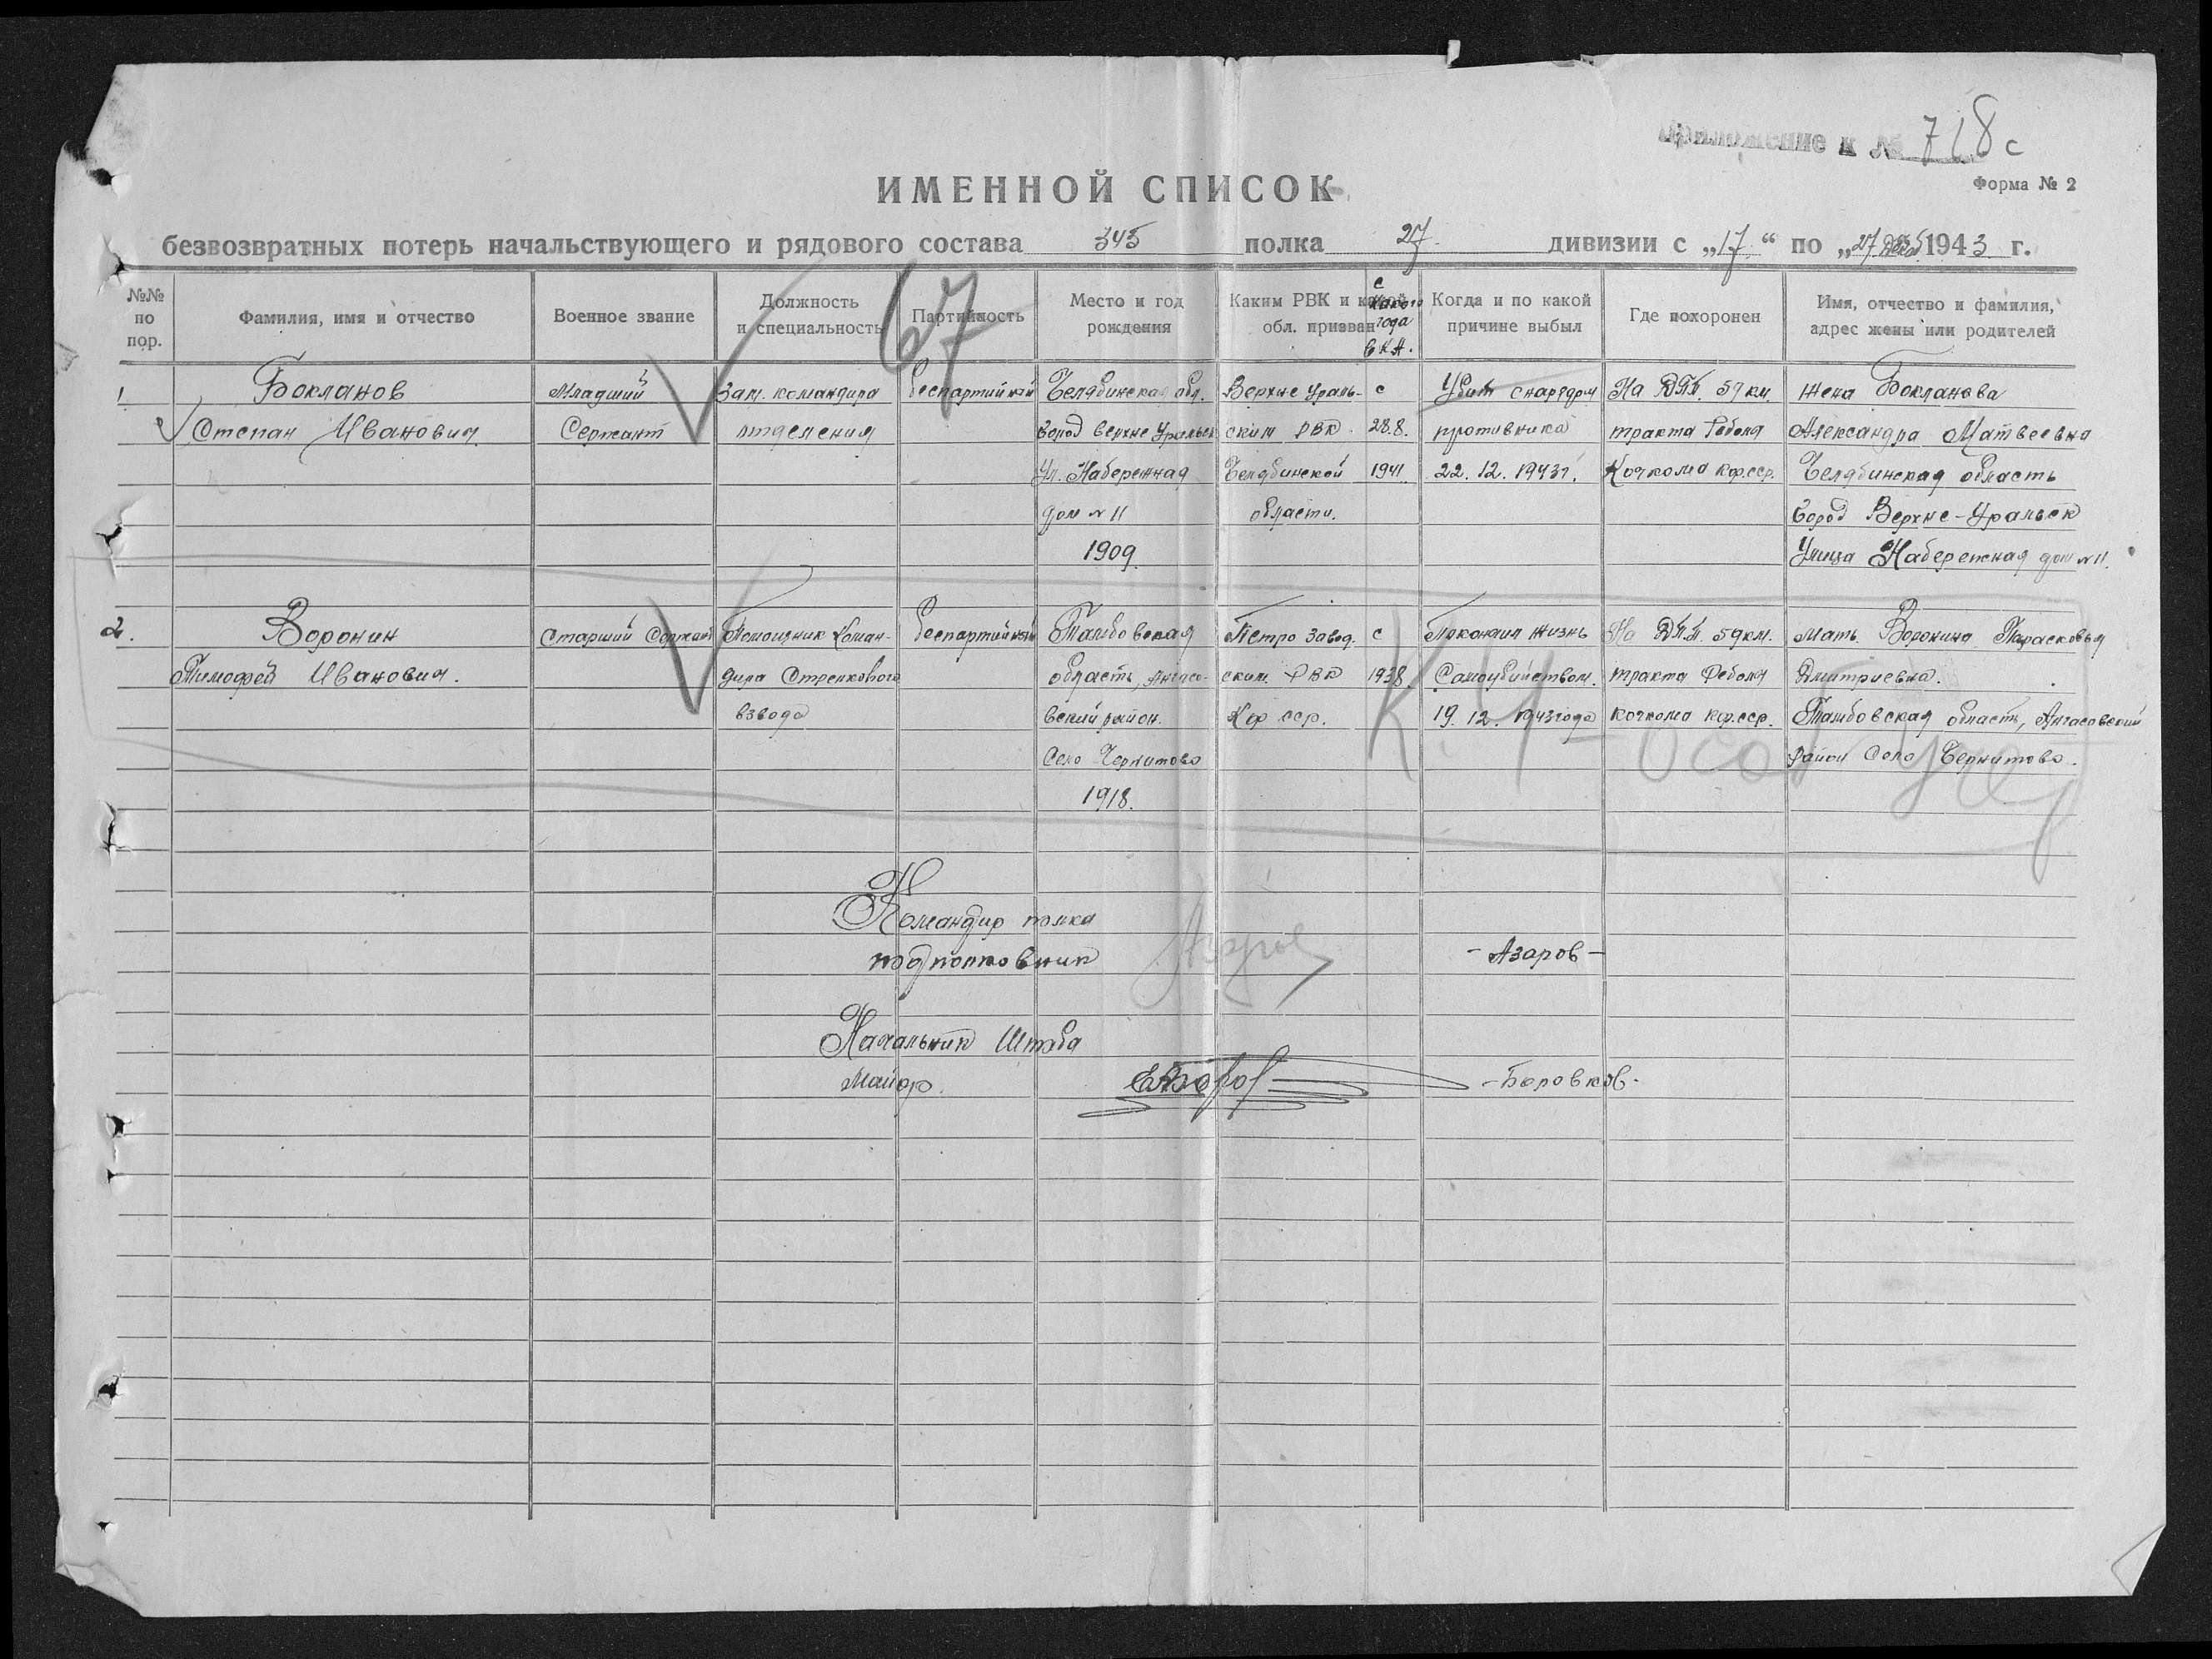 Приложение к № 718с
Форма № 2
ИМЕННОЙ СПИСОК
безвозвратных потерь начальствующего и рядового состава 345 полка 27 дивизии с „17“ по „27 1943 г.
67
№№ по пор.
Фамилия, имя и отчество
Военное звание
Должность и специальность
Партийность
Место и год рождения
Каким РВК и какой обл. призван
с какого года в К.А.
Когда и по какой причине выбыл
Где похоронен
Имя, отчество и фамилия, адрес жены или родителей
1
Бокланов
Степан Иванович
Младший
Сержант
Зам. командира
отделения
беспартийный
Челябинская обл.
город Верхне Уральск
Ул. Набережная
дом № 11
1909.
Верхне Ураль-
ским РВК
Челябинской
области.
с
28.8.
1941.
Убит снарядом
противника
22.12.1943г.
На ДПП. 59 км.
тракта Реболя
Кочкома кфсср.
Жена Бокланова
Александра Матвеевна
Челябинская область
город Верхне-Уральск
Улица Набережная дом № 11.
2.
Воронин
Тимофей Иванович.
Старший Сержант
Помощник Коман-
дира Стрелкового
взвода
беспартийный
Тамбовская
область,
вский район.
Село Чернитово
1918.
Петрозавод.
ским РВК
Кфсср.
с
1938.
Покончил жизнь
Самоубийством.
19.12.1943 года
На ДПП. 59 км.
тракта Реболя
кочкома кфсср.
Мать Воронина Парасковья
Дмитриевна.
Тамбовская область,
район Село Чернитово.
К.У - особ. учет
Командир полка
подполковник
-Азаров-
Начальник Штаба
Майор.
-Боровков-